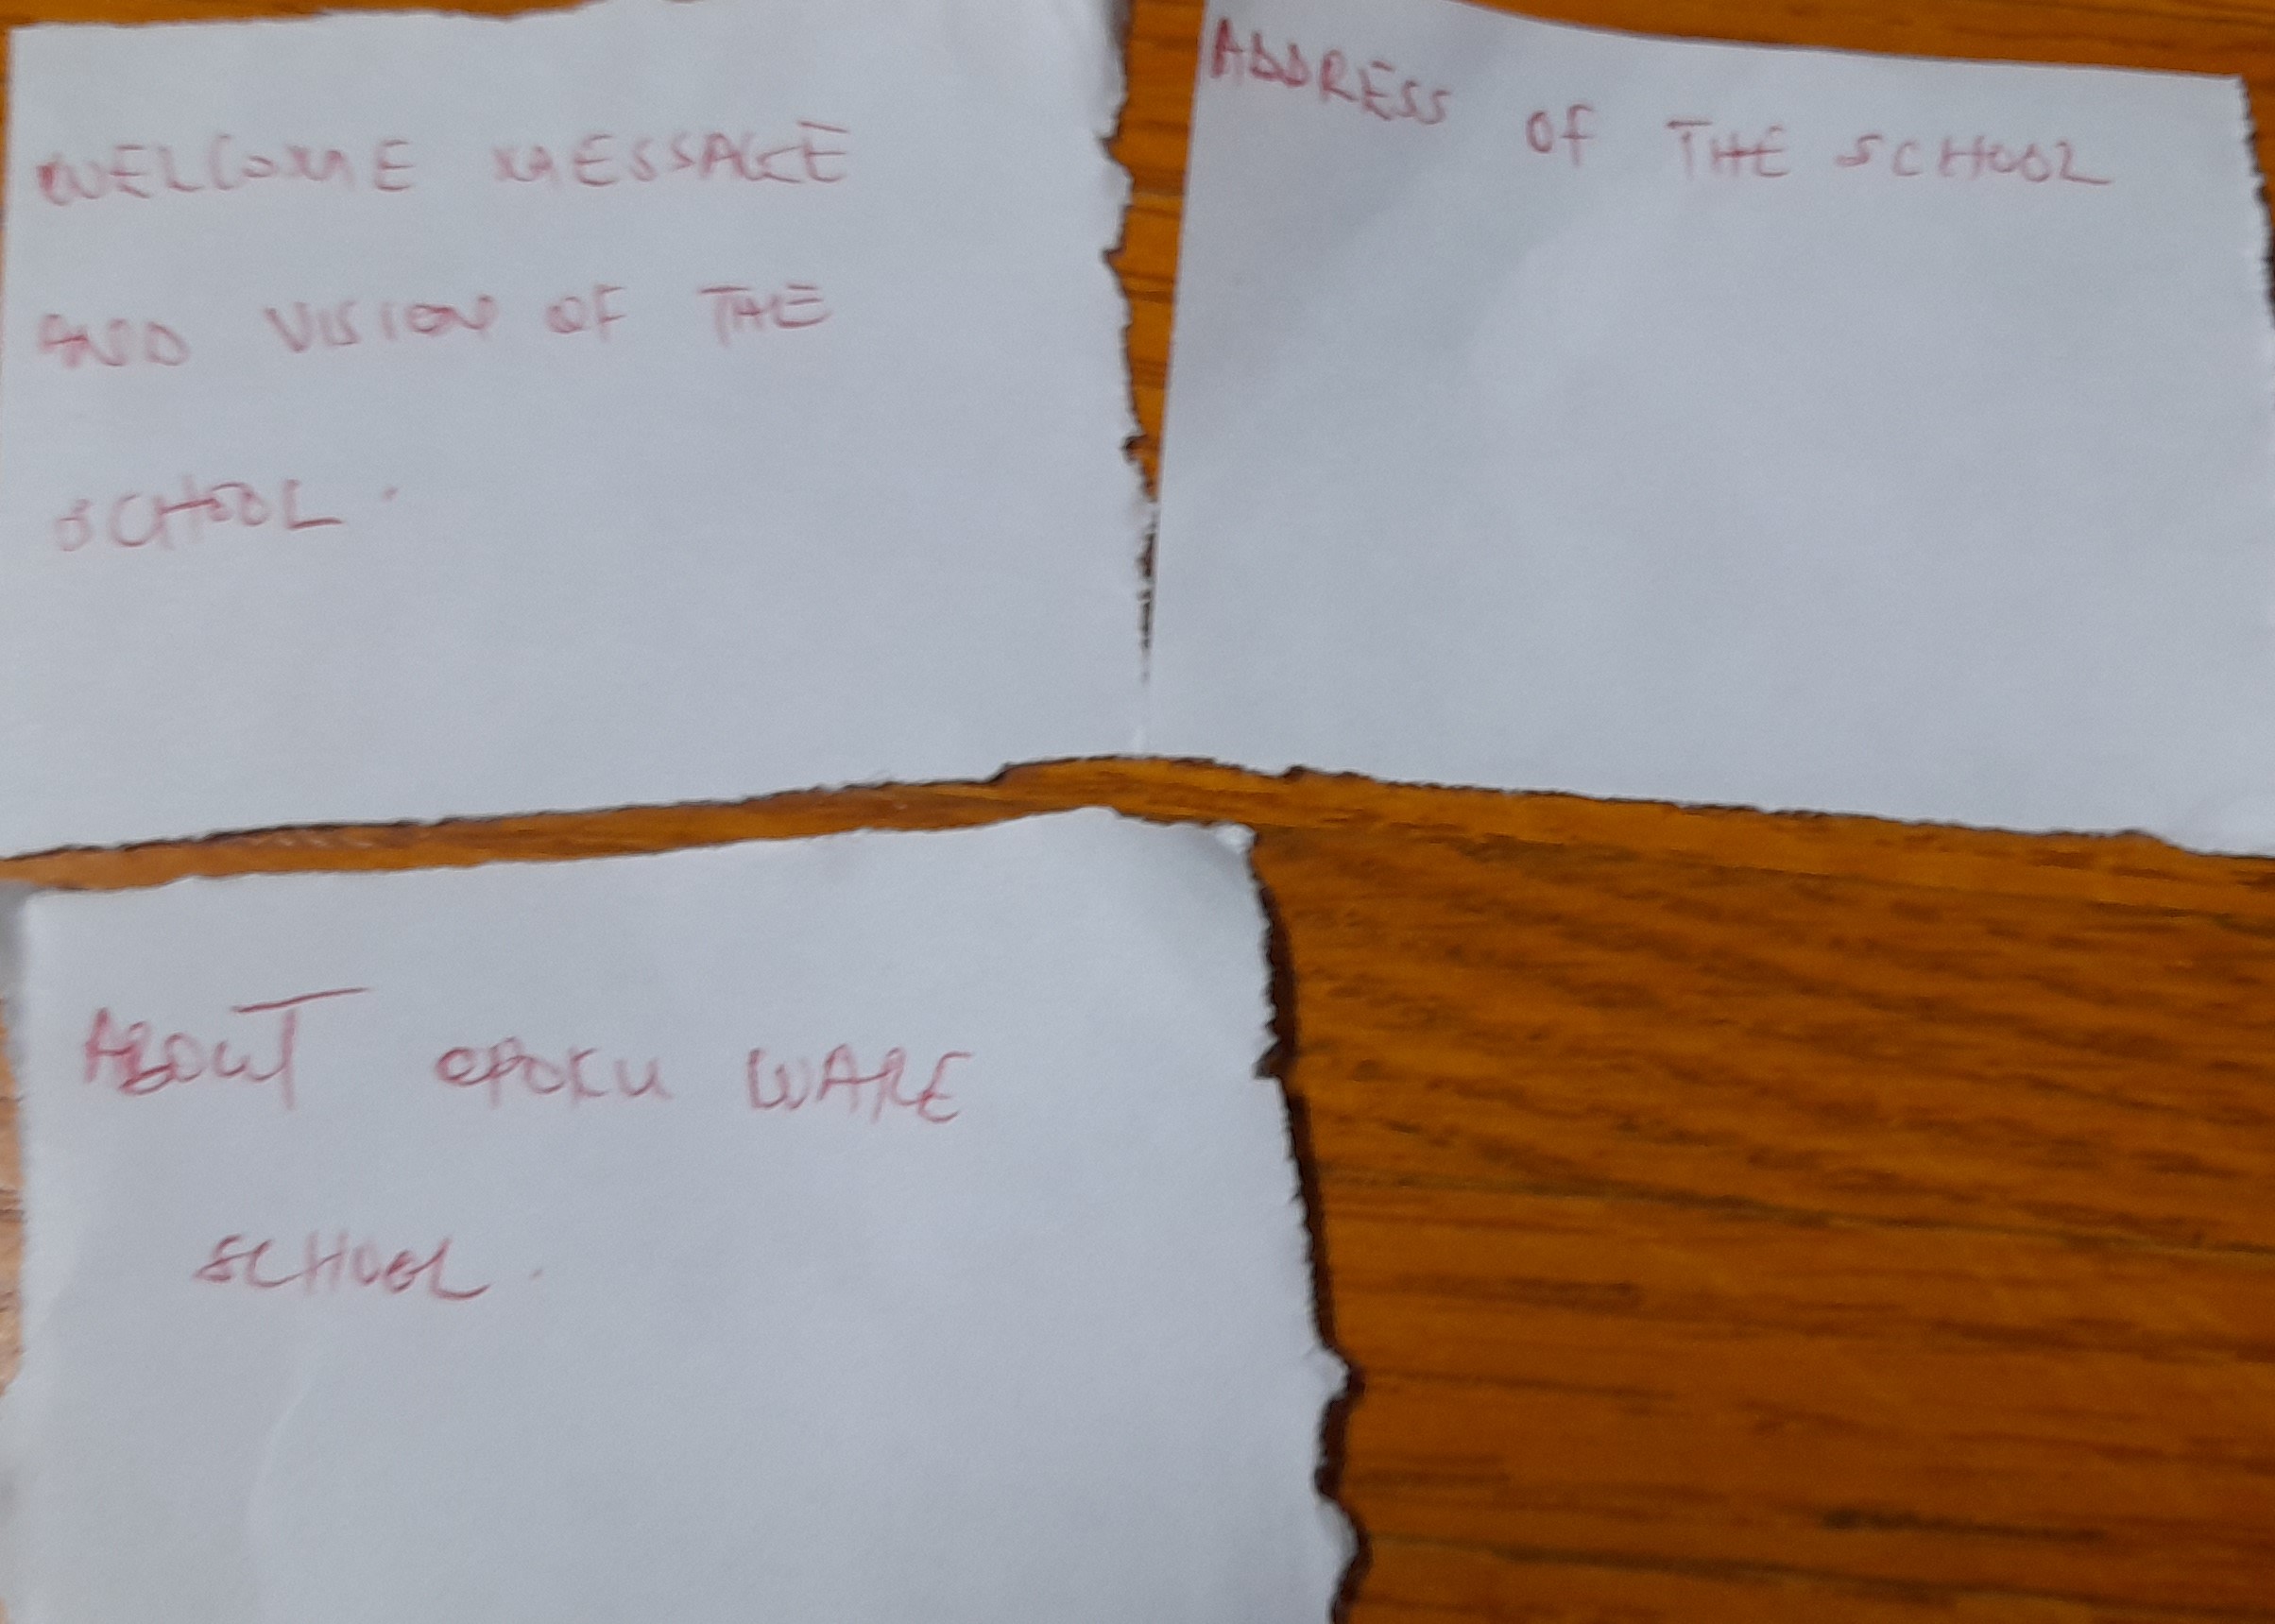 WELCOME MESSAGE
AND VISION OF THE
SCHOOL.
ADDRESS OF THE SCHOOL
ABOUT OPOKU WARE
SCHOOL.